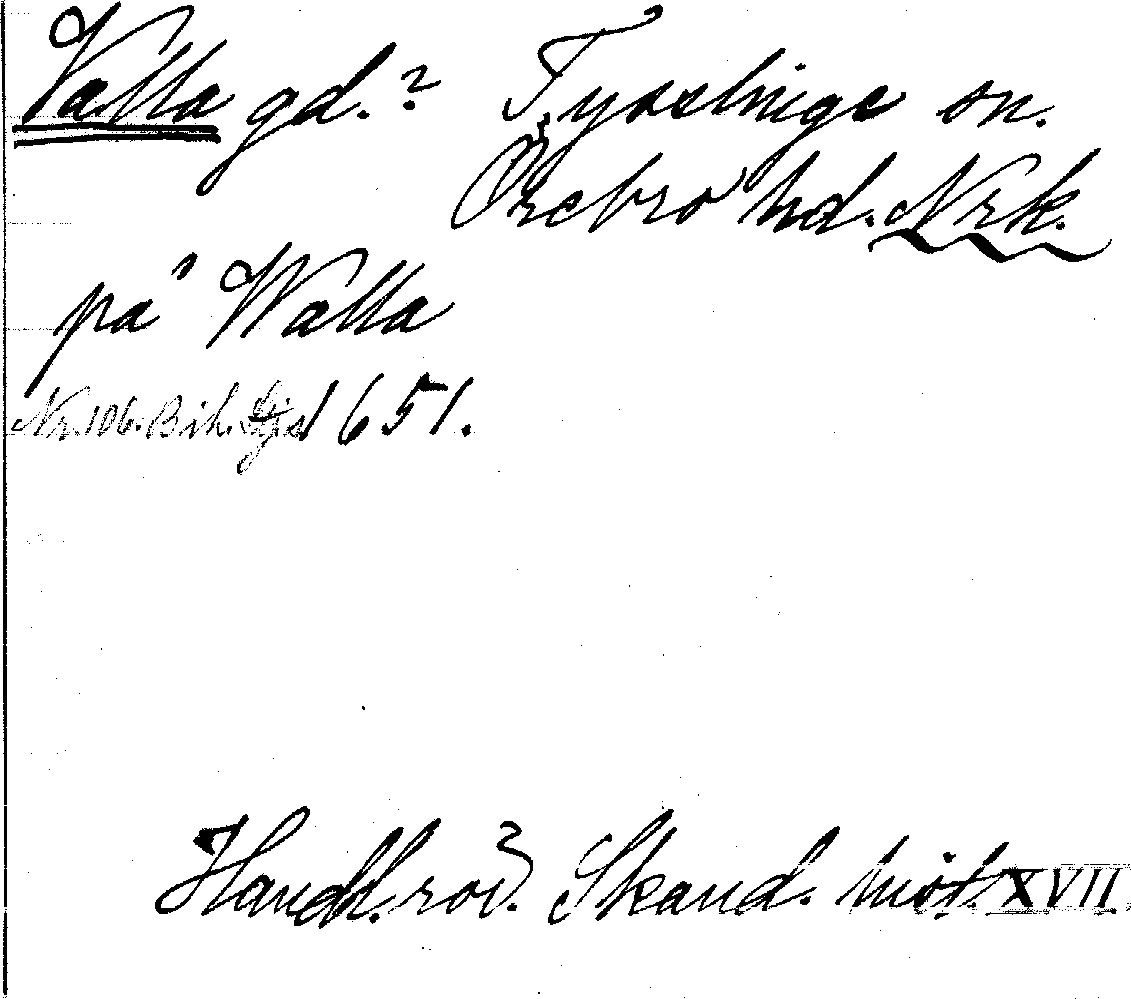 Valla gd.? Tysslinge sn.
Örebro hd. Nrk.
på Walla
Nr. 106. Bih. 1651.
Handl. röv. Skand. hist. XVII